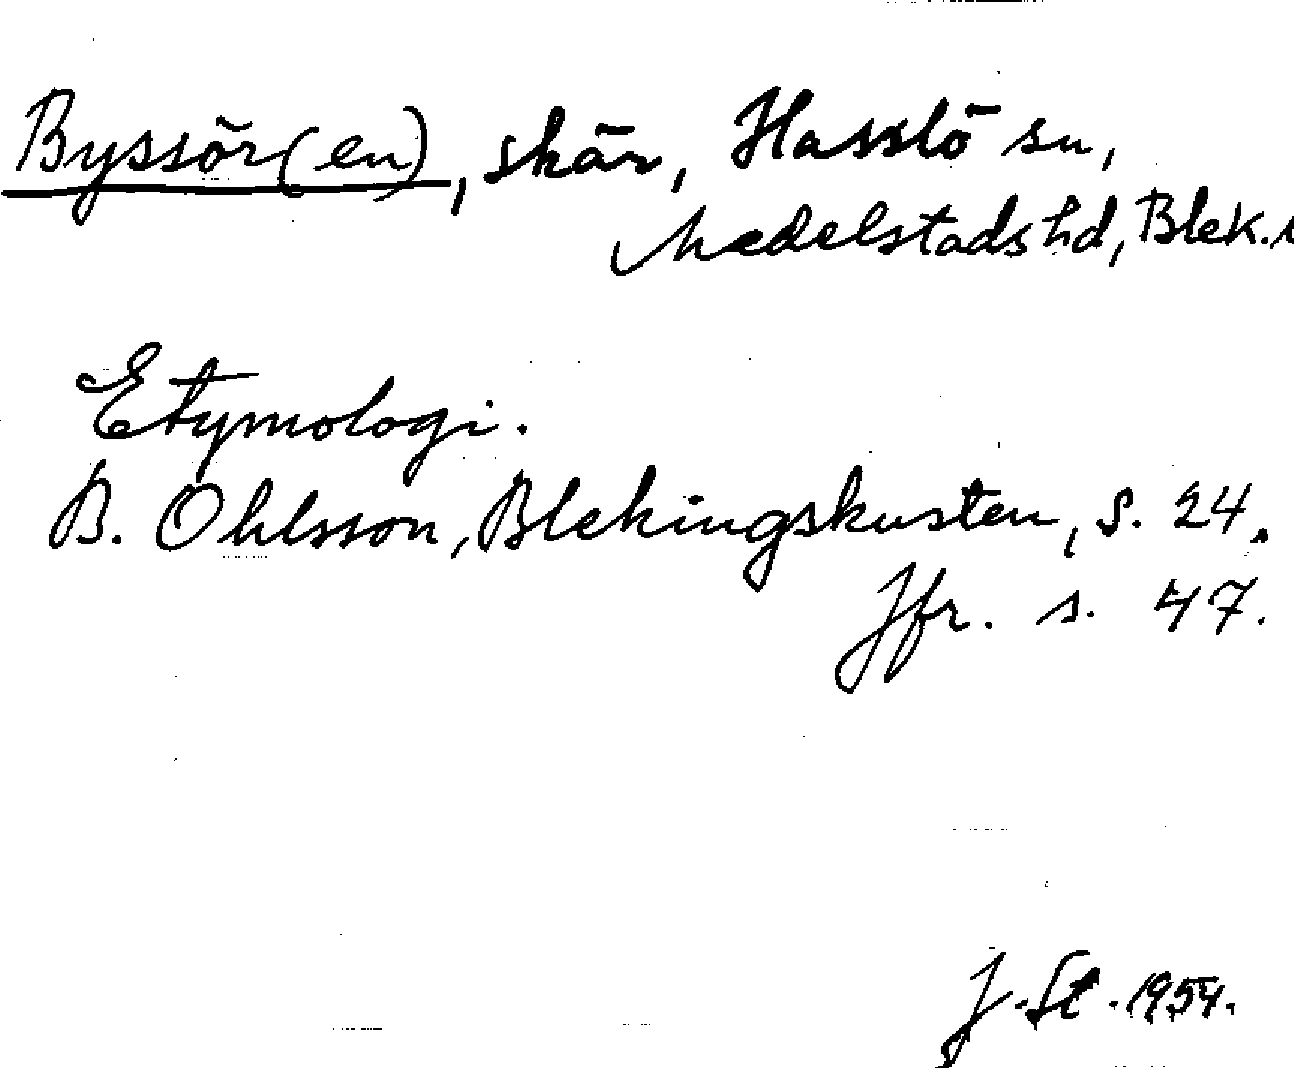 Byssör(en), skär, Hasslö sn,
Medelstads hd, Blek. l
Etymologi.
B. Ohlsson, Blekingskusten, s. 24.
Jfr. s. 47.
J. St. 1954.